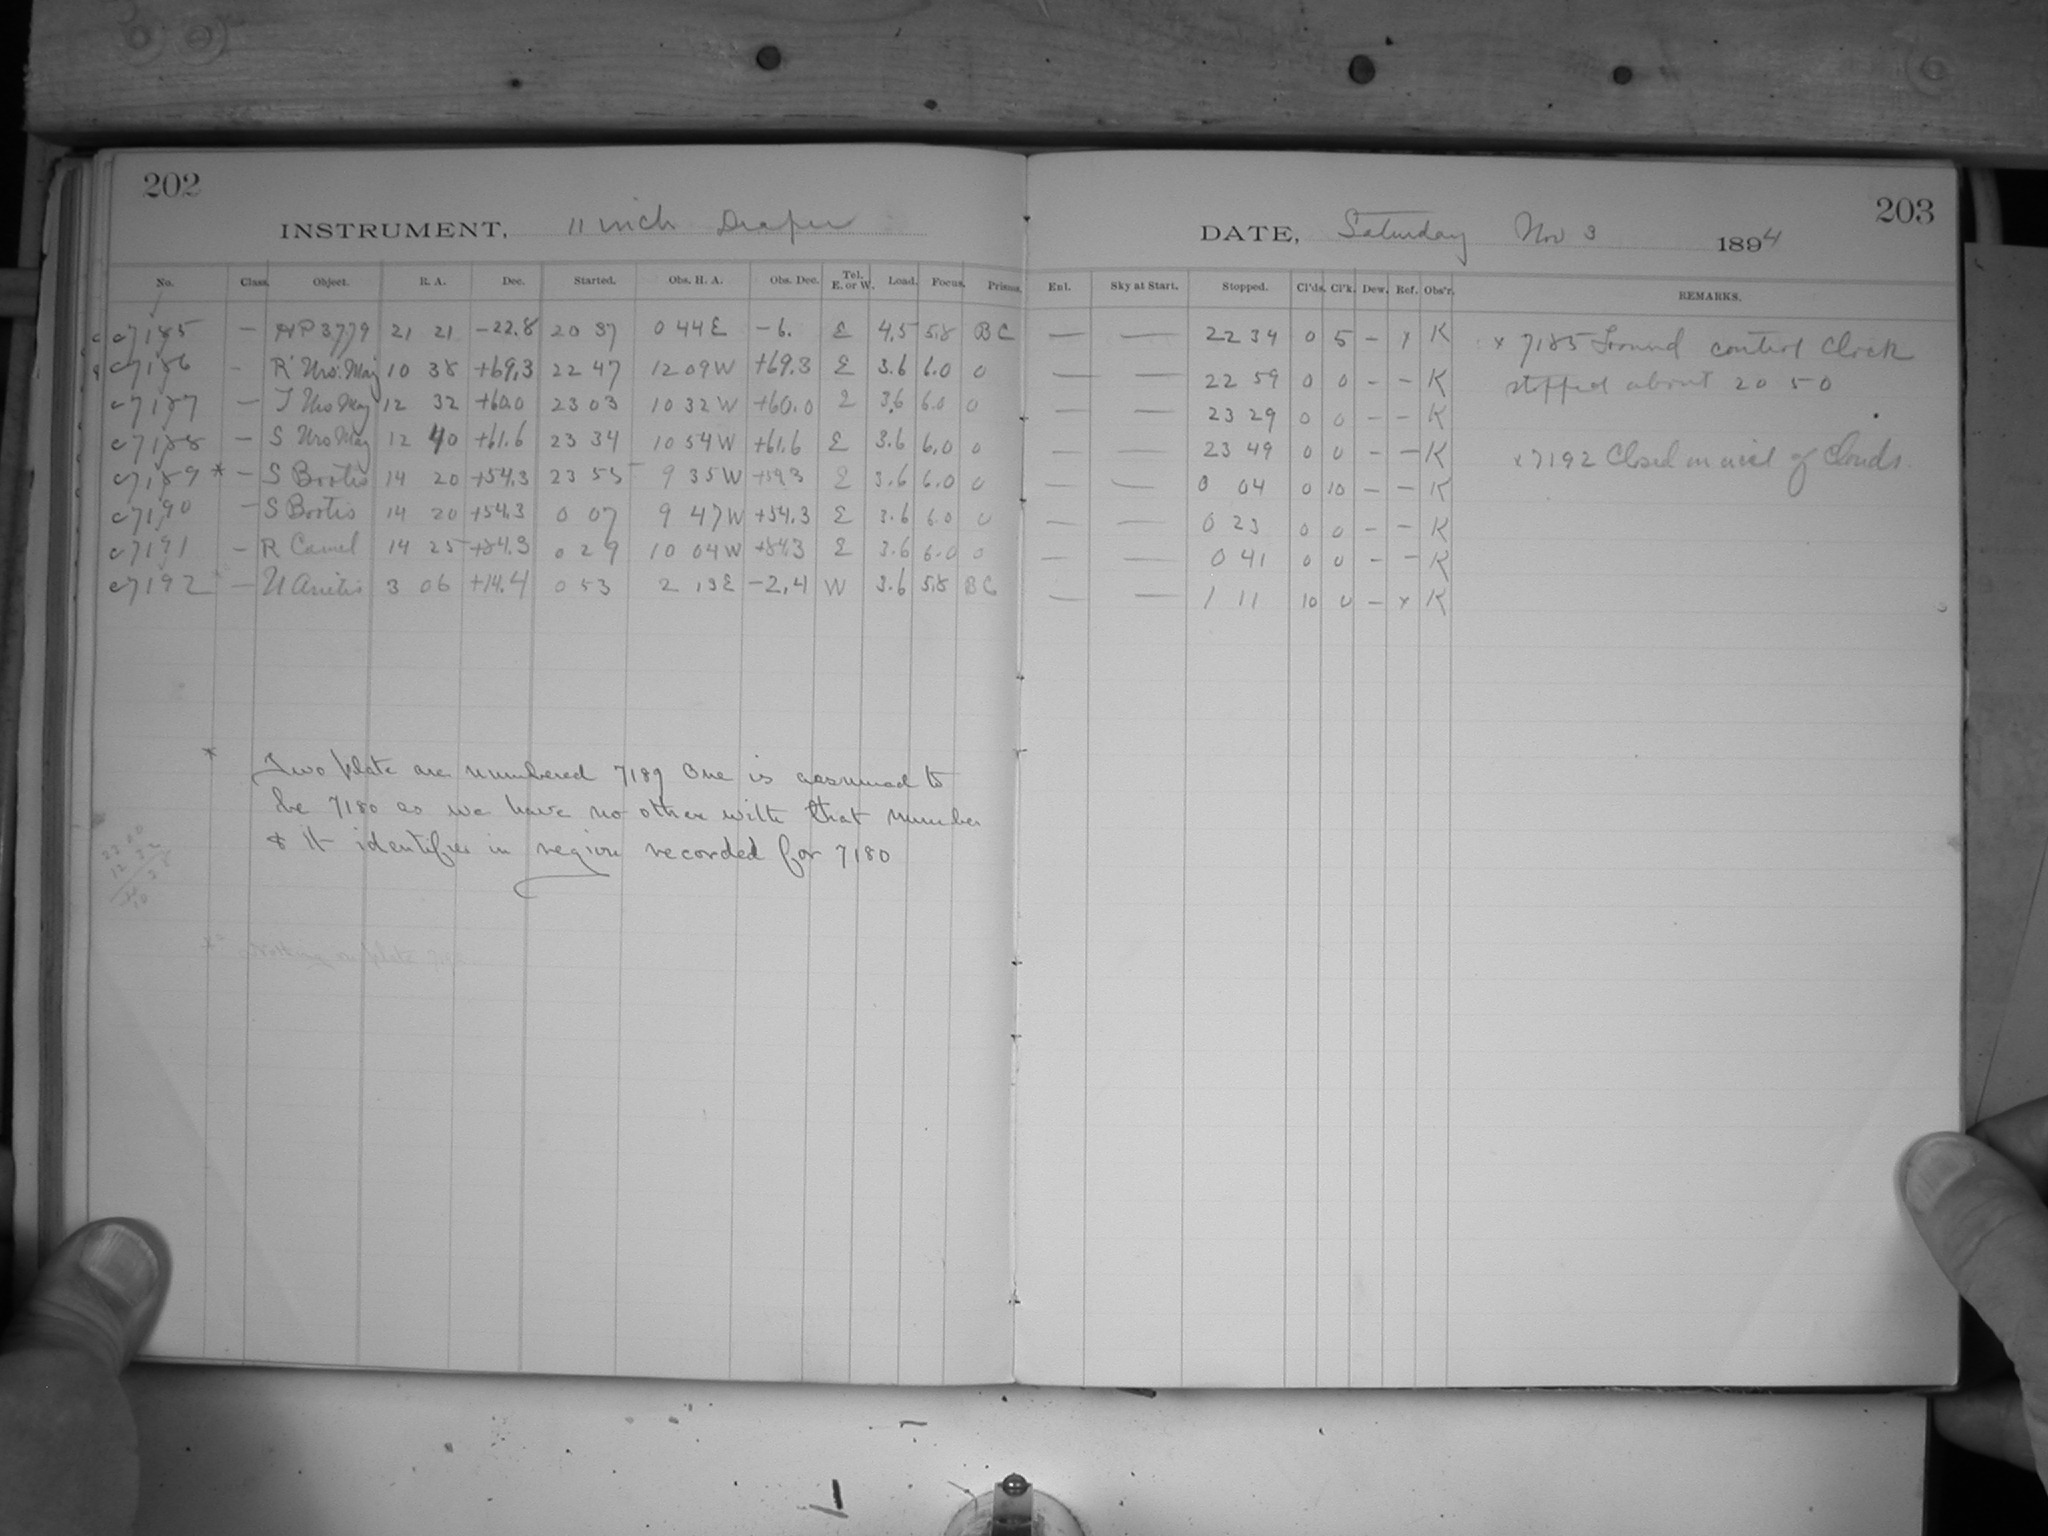 202
INSTRUMENT, 11 inch Draper
No. Class. Object. R. A. Dec. Started. Obs. H. A. Obs. Dec. Tel. E. or W. Load. Focus. Prisms.
c7185 — AP 3779 21 21 -22.8 20 37 0 44 E -6. E 4.5 5.8 BC
c7186 - R Urs. Maj 10 38 +69.3 22 47 12 09 W +69.3 E 3.6 6.0 0
c7187 — T Urs Maj 12 32 +60.0 23 03 10 32 W +60.0 E 3.6 6.0 0
c7188 — S Urs Maj 12 40 +61.6 23 34 10 54 W +61.6 E 3.6 6.0 0
c7189 * — S Bootis 14 20 +54.3 23 55 9 35 W +54.3 E 3.6 6.0 0
c7190 — S Bootis 14 20 +54.3 0 07 9 47 W +54.3 E 3.6 6.0 0
c7191 — R Camel 14 25 +84.3 0 29 10 04 W +84.3 E 3.6 6.0 0
c7192 — U Arietis 3 06 +14.4 0 53 2 13 E -2.4 W 3.6 5.8 BC
* Two plate are numbered 7189 One is assumed to
be 7180 as we have no other with that number
& it identifies in region recorded for 7180
Nothing on plate
203
DATE, Saturday Nov 3 1894
Enl. Sky at Start. Stopped. Cl'ds. Cl'k. Dew. Ref. Obs'r. REMARKS.
— — 22 34 0 5 - x K x 7185 Found control clock
— — 22 59 0 0 - - K stopped about 20 50
— — 23 29 0 0 - - K
— — 23 49 0 0 - - K x 7192 Closed on acct of Clouds.
— — 0 04 0 10 - - K
— — 0 23 0 0 - - K
— — 0 41 0 0 - - K
— — 1 11 10 0 - x K